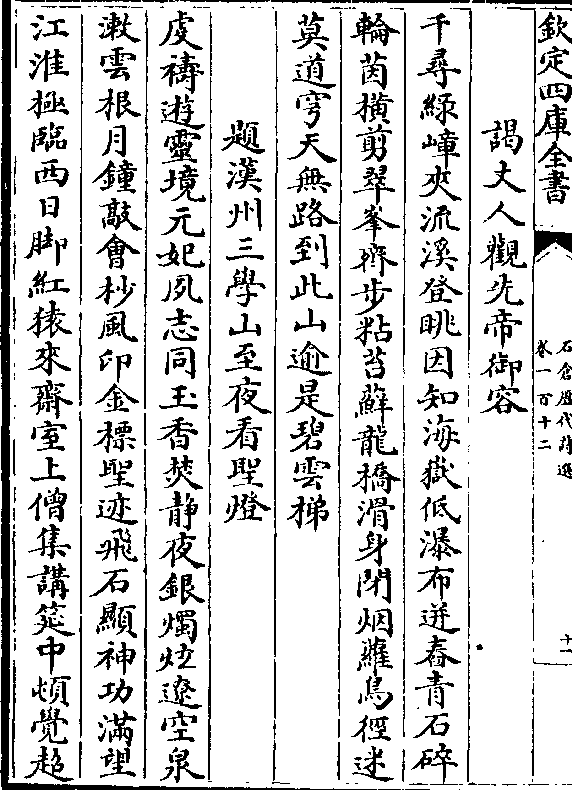 欽定四庫全書
石倉歷代詩選
卷一百十二
十一
謁丈人觀先帝御容
千尋緑嶂夾流溪登眺因知海嶽低瀑布迸舂青石碎
輪茵横剪翠峯齊步粘苔蘚龍橋滑身閉烟蘿鳥徑迷
莫道穹天無路到此山逾是碧雲梯
題漢州三學山至夜看聖燈
虔禱遊靈境元妃夙志同玉香焚静夜銀燭炫遼空泉
漱雲根月鐘敲會杪風印金標聖迹飛石顯神功滿望
江淮極臨西日脚紅猿來齋室上僧集講筵中頓覺超